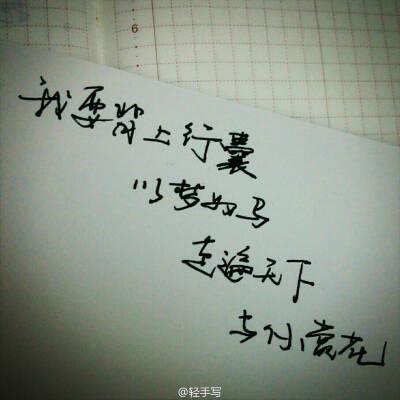 6
我要背上行囊
以梦如马
走遍天下
与你赏花
@轻手写